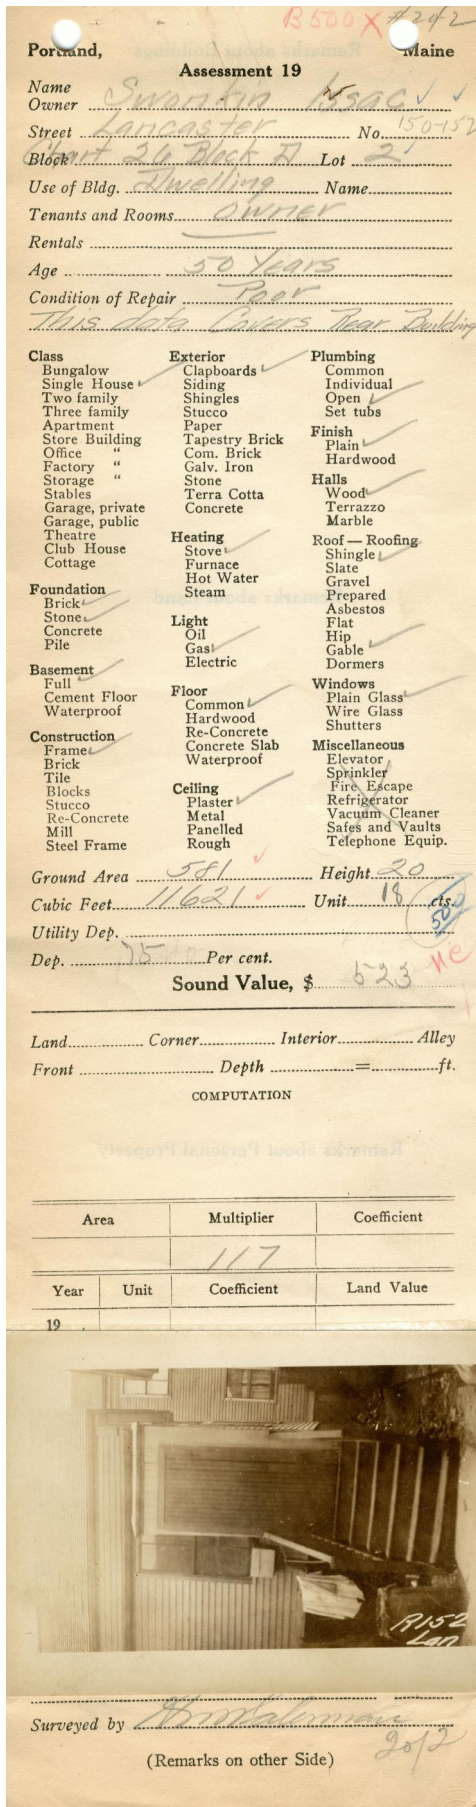 B500 X #242
Portland, Maine
Assessment 19
Name
Owner Swontkin Issac
Street Lancaster No. 150-152
Block Chart 26 Block D Lot 2
Use of Bldg. Dwelling Name
Tenants and Rooms owner
Rentals
Age 50 Years
Condition of Repair Poor
This data Covers Rear Building
Class
Bungalow
Single House
Two family
Three family
Apartment
Store Building
Office "
Factory "
Storage "
Stables
Garage, private
Garage, public
Theatre
Club House
Cottage
Foundation
Brick
Stone
Concrete
Pile
Basement
Full
Cement Floor
Waterproof
Construction
Frame
Brick
Tile
Blocks
Stucco
Re-Concrete
Mill
Steel Frame
Exterior
Clapboards
Siding
Shingles
Stucco
Paper
Tapestry Brick
Com. Brick
Galv. Iron
Stone
Terra Cotta
Concrete
Heating
Stove
Furnace
Hot Water
Steam
Light
Oil
Gas
Electric
Floor
Common
Hardwood
Re-Concrete
Concrete Slab
Waterproof
Ceiling
Plaster
Metal
Panelled
Rough
Plumbing
Common
Individual
Open
Set tubs
Finish
Plain
Hardwood
Halls
Wood
Terrazzo
Marble
Roof — Roofing
Shingle
Slate
Gravel
Prepared
Asbestos
Flat
Hip
Gable
Dormers
Windows
Plain Glass
Wire Glass
Shutters
Miscellaneous
Elevator
Sprinkler
Fire Escape
Refrigerator
Vacuum Cleaner
Safes and Vaults
Telephone Equip.
Ground Area 581 Height 20
Cubic Feet 11621 Unit 18 cts.
500
Utility Dep.
Dep. 75 Per cent.
Sound Value, $ 523
Land Corner Interior Alley
Front Depth = ft.
COMPUTATION
Area Multiplier Coefficient
117
Year Unit Coefficient Land Value
19
R152
Lan
Surveyed by
20/2
(Remarks on other Side)